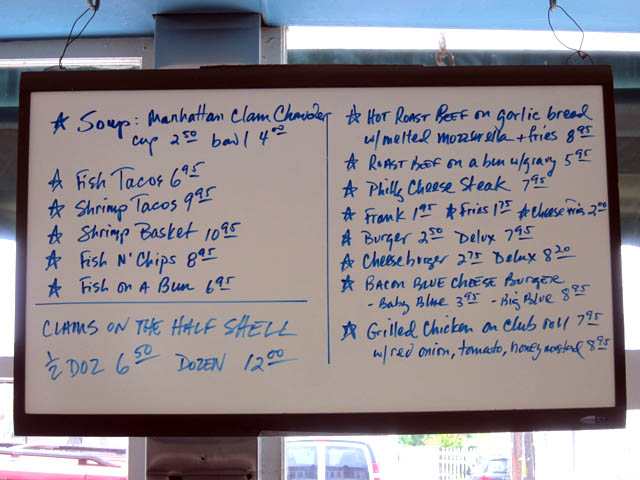 ☆ Soup: Manhattan Clam Chowder
cup 2.50 bowl 4.00
☆ Fish Tacos 6.95
☆ Shrimp Tacos 9.95
☆ Shrimp Basket 10.95
☆ Fish N' Chips 8.95
☆ Fish on A Bun 6.95
CLAMS ON THE HALF SHELL
1/2 DOZ 6.50 DOZEN 12.00
☆ HOT ROAST BEEF on garlic bread
w/melted mozzarella + fries 8.95
☆ ROAST BEEF on a bun w/gravy 5.95
☆ Philly Cheese Steak 7.95
☆ Frank 1.95 ☆ Fries 1.75 ☆ Cheese Fries 2.00
☆ Burger 2.50 Delux 7.95
☆ Cheeseburger 2.75 Delux 8.20
☆ BACON BLUE CHEESE BURGER
- Baby Blue 3.95 - Big Blue 8.95
☆ Grilled Chicken on Club roll 7.95
w/red onion, tomato, honey mustard 8.95